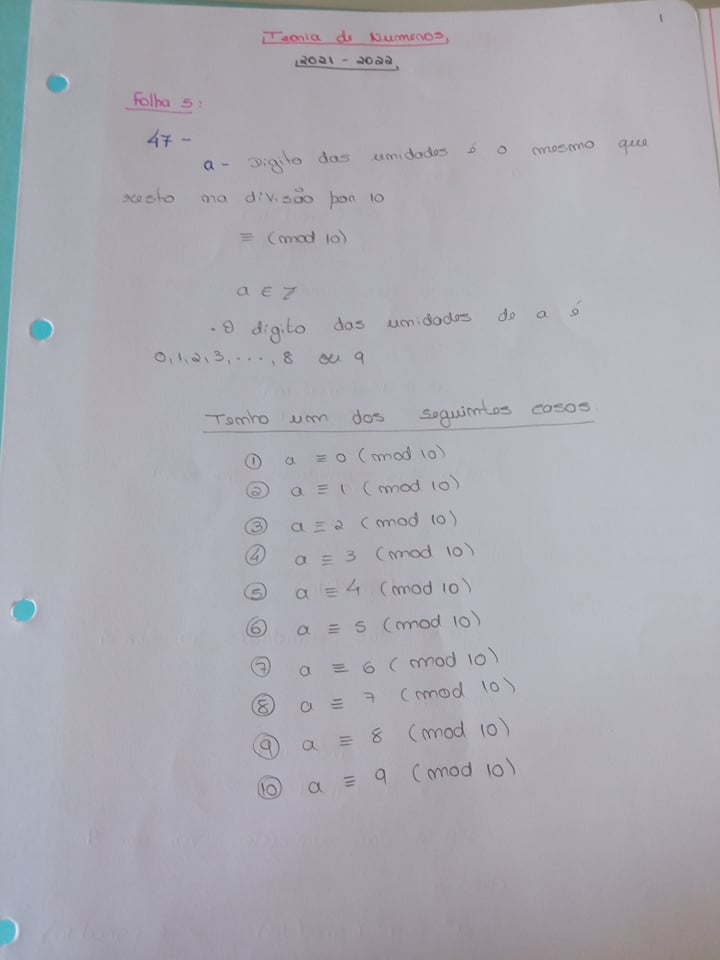 1
Teoria de Numeros,
2021 - 2022,
Folha 5:
47 -
a - Digito das unidades é o mesmo que
resto na divisão por 10
≡ (mod 10)
a ∈ Z
. O digito das unidades de a é
0,1,2,3,...,8 ou 9
Tenho um dos seguintes casos:
① a ≡ 0 (mod 10)
② a ≡ 1 (mod 10)
③ a ≡ 2 (mod 10)
④ a ≡ 3 (mod 10)
⑤ a ≡ 4 (mod 10)
⑥ a ≡ 5 (mod 10)
⑦ a ≡ 6 (mod 10)
⑧ a ≡ 7 (mod 10)
⑨ a ≡ 8 (mod 10)
⑩ a ≡ 9 (mod 10)